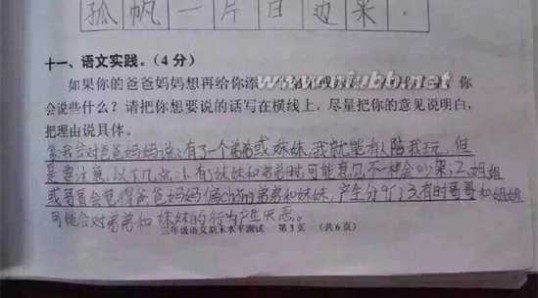 孤帆一片日边来.
十一、语文实践。(4分)
如果你的爸爸妈妈想再给你添 你
会说些什么?请把你想要说的话写在横线上,尽量把你的意见说明白,
把理由说具体。
对爸爸妈妈说:有了一个弟弟或妹妹,我就能有人陪我玩,但
是要注意,以下几点:1.有了妹妹和弟弟时,可能
或哥哥会觉得爸爸妈妈偏心你的弟弟和妹妹,产生分 3.有时哥哥和姐姐
可能会对弟弟和妹妹的行为产生
三年级语文期末水平测试 第5页 (共6页)